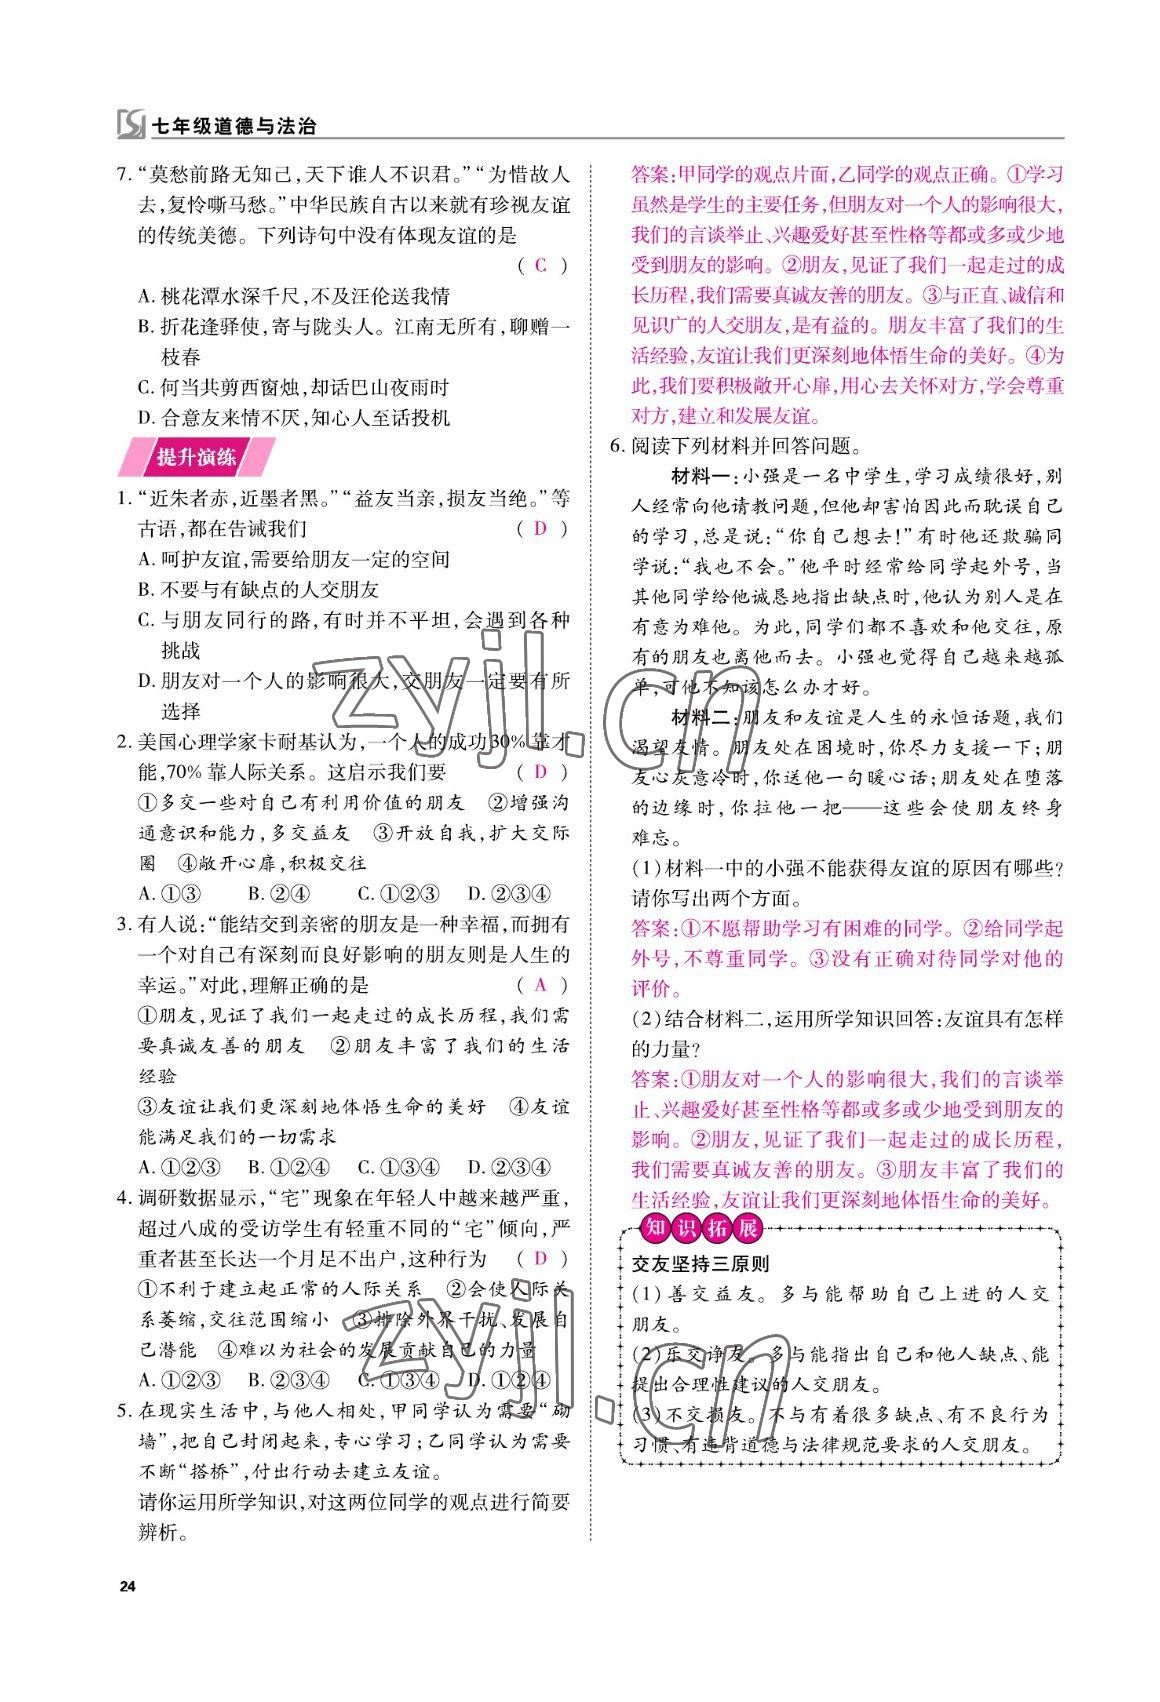 七年级道德与法治
7. “莫愁前路无知己,天下谁人不识君。”“为惜故人
去,复怜嘶马愁。”中华民族自古以来就有珍视友谊
的传统美德。下列诗句中没有体现友谊的是
( C )
A. 桃花潭水深千尺,不及汪伦送我情
B. 折花逢驿使,寄与陇头人。江南无所有,聊赠一
枝春
C. 何当共剪西窗烛,却话巴山夜雨时
D. 合意友来情不厌,知心人至话投机
提升演练
1. “近朱者赤,近墨者黑。”“益友当亲,损友当绝。”等
古语,都在告诫我们 ( D )
A. 呵护友谊,需要给朋友一定的空间
B. 不要与有缺点的人交朋友
C. 与朋友同行的路,有时并不平坦,会遇到各种
挑战
D. 朋友对一个人的影响很大,交朋友一定要有所
选择
2. 美国心理学家卡耐基认为,一个人的成功30%靠才
能,70%靠人际关系。这启示我们要 ( D )
①多交一些对自己有利用价值的朋友 ②增强沟
通意识和能力,多交益友 ③开放自我,扩大交际
圈 ④敞开心扉,积极交往
A. ①③ B. ②④ C. ①②③ D. ②③④
3. 有人说:“能结交到亲密的朋友是一种幸福,而拥有
一个对自己有深刻而良好影响的朋友则是人生的
幸运。”对此,理解正确的是 ( A )
①朋友,见证了我们一起走过的成长历程,我们需
要真诚友善的朋友 ②朋友丰富了我们的生活
经验
③友谊让我们更深刻地体悟生命的美好 ④友谊
能满足我们的一切需求
A. ①②③ B. ①②④ C. ①③④ D. ②③④
4. 调研数据显示,“宅”现象在年轻人中越来越严重,
超过八成的受访学生有轻重不同的“宅”倾向,严
重者甚至长达一个月足不出户,这种行为 ( D )
①不利于建立起正常的人际关系 ②会使人际关
系萎缩,交往范围缩小 ③排除外界干扰、发展自
己潜能 ④难以为社会的发展贡献自己的力量
A. ①②③ B. ②③④ C. ①③④ D. ①②④
5. 在现实生活中,与他人相处,甲同学认为需要“砌
墙”,把自己封闭起来,专心学习;乙同学认为需要
不断“搭桥”,付出行动去建立友谊。
请你运用所学知识,对这两位同学的观点进行简要
辨析。
答案:甲同学的观点片面,乙同学的观点正确。①学习
虽然是学生的主要任务,但朋友对一个人的影响很大,
我们的言谈举止、兴趣爱好甚至性格等都或多或少地
受到朋友的影响。②朋友,见证了我们一起走过的成
长历程,我们需要真诚友善的朋友。③与正直、诚信和
见识广的人交朋友,是有益的。朋友丰富了我们的生
活经验,友谊让我们更深刻地体悟生命的美好。④为
此,我们要积极敞开心扉,用心去关怀对方,学会尊重
对方,建立和发展友谊。
6. 阅读下列材料并回答问题。
材料一:小强是一名中学生,学习成绩很好,别
人经常向他请教问题,但他却害怕因此而耽误自己
的学习,总是说:“你自己想去!”有时他还欺骗同
学说:“我也不会。”他平时经常给同学起外号,当
其他同学给他诚恳地指出缺点时,他认为别人是在
有意为难他。为此,同学们都不喜欢和他交往,原
有的朋友也离他而去。小强也觉得自己越来越孤
单,可他不知该怎么办才好。
材料二:朋友和友谊是人生的永恒话题,我们
渴望友情。朋友处在困境时,你尽力支援一下;朋
友心灰意冷时,你送他一句暖心话;朋友处在堕落
的边缘时,你拉他一把——这些会使朋友终身
难忘。
(1)材料一中的小强不能获得友谊的原因有哪些?
请你写出两个方面。
答案:①不愿帮助学习有困难的同学。②给同学起
外号,不尊重同学。③没有正确对待同学对他的
评价。
(2)结合材料二,运用所学知识回答:友谊具有怎样
的力量?
答案:①朋友对一个人的影响很大,我们的言谈举
止、兴趣爱好甚至性格等都或多或少地受到朋友的
影响。②朋友,见证了我们一起走过的成长历程,
我们需要真诚友善的朋友。③朋友丰富了我们的
生活经验,友谊让我们更深刻地体悟生命的美好。
知识拓展
交友坚持三原则
(1)善交益友。多与能帮助自己上进的人交
朋友。
(2)乐交诤友。多与能指出自己和他人缺点、能
提出合理性建议的人交朋友。
(3)不交损友。不与有着很多缺点、有不良行为
习惯、有违背道德与法律规范要求的人交朋友。
24
zyjl.cn
zyjl.cn